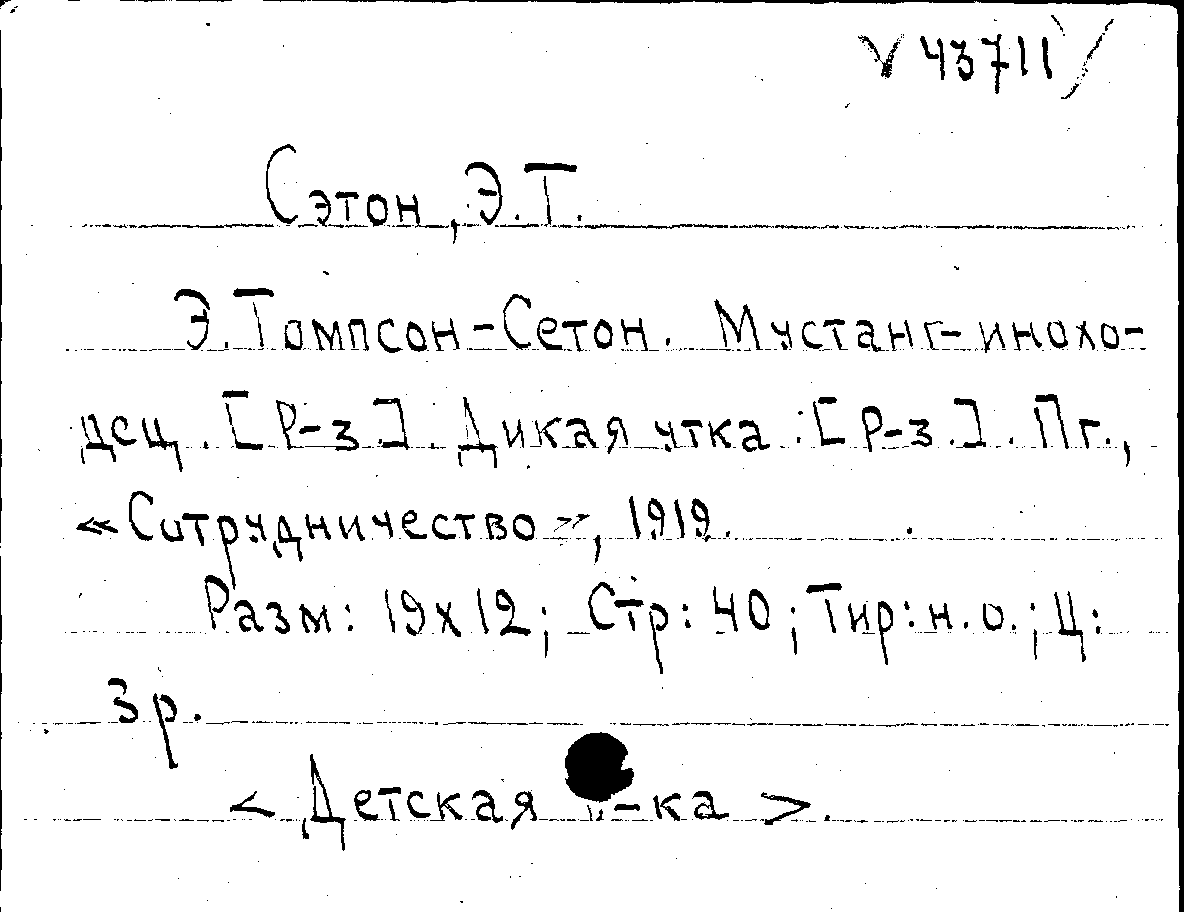 V 43711
Сэтон, Э.Т.
Э.Томпсон-Сетон. Мустанг-инохо-
дец. [Р-з.]. Дикая утка. [Р-з.]. Пг.,
«Сотрудничество», 1919.
Разм: 19х12; Стр: 40; Тир: н.о.; Ц:
3р.
< Детская -ка >.